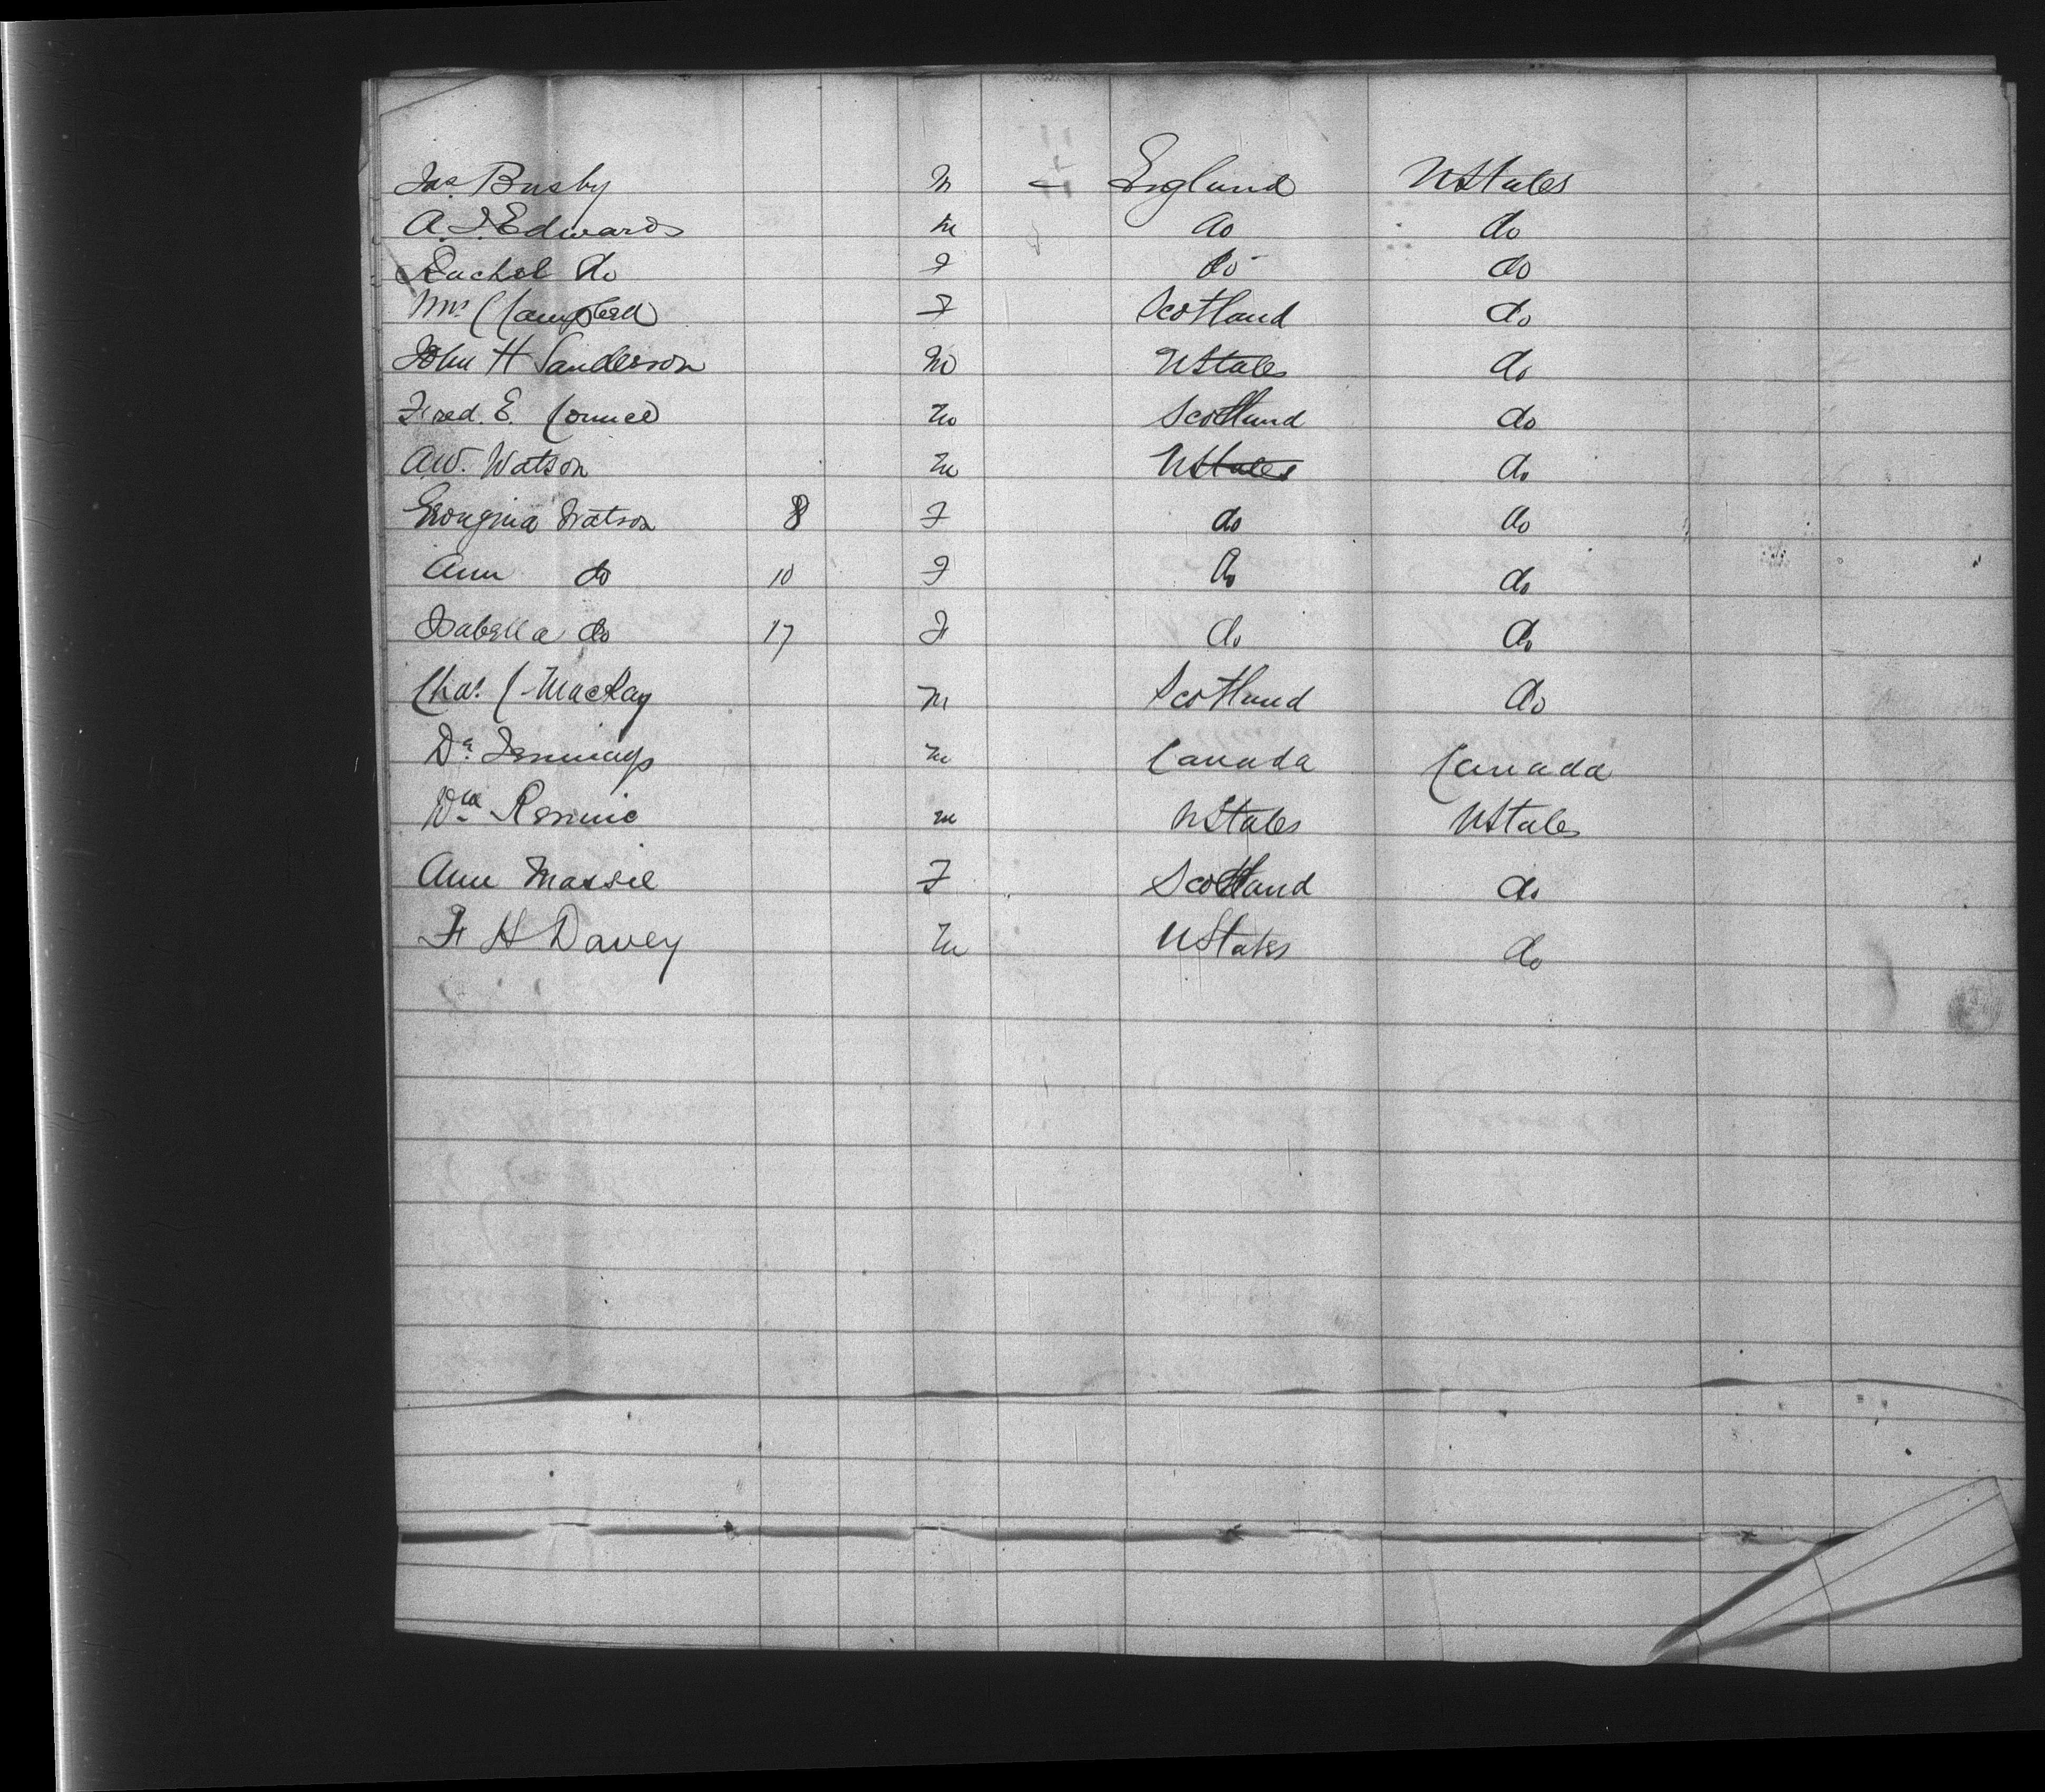 Jas Busby M – England UStates
A. J. Edwards M do do
Rachel do F do do
Mrs C Campbell F Scotland do
John H Sanderson M UStates do
Fred. E. M Scotland do
AW. Watson M UStates do
Georgina Watson 8 F do do
Ann do 10 F do do
Isabella do 17 F do do
Chas. C. MacKay M Scotland do
Dr. Jennings M Canada Canada
Wm Rennie M UStates UStates
Ann Massie F Scotland do
F H Davey M UStates do